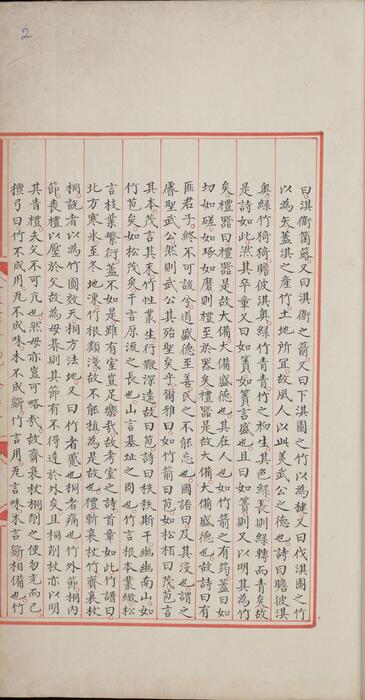 2
曰淇衞箘簬又曰淇衞之箭又曰下淇園之竹以為揵又曰伐淇園之竹
以為矢蓋淇之產竹土地所宜故風人以此美武公之德也詩曰瞻彼淇
奥綠竹猗猗瞻彼淇奥綠竹青青竹之初生其色綠長則綠轉而青矣故
是詩如此然其卒章又曰如簀如簀言盛也且曰如簀則又以明其為竹
矣禮器曰禮器是故大備大備盛德也其在人也如竹箭之有筠蓋曰如
切如磋如琢如磨則禮至於器矣禮器是故大備大備盛德也故詩曰有
匪君子終不可諼兮道盛德至善民之不能忘也國語曰及其没也謂之
睿聖武公然則武公其殆聖矣乎爾雅曰如竹箭曰苞如松柏曰茂苞言
其本茂言其末竹性叢生行鞭深遠故曰苞詩曰秩秩斯干幽幽南山如
竹苞矣如松茂矣干言原流之長也山言基址之固也竹言根本業緻松
言枝葉繁衍蓋不如是雖有室豈足樂哉故考室之詩首章如此竹譜曰
北方寒氷至冬地凍竹根類淺故不能植為是故也禮斬衰杖竹齊衰杖
桐説者以為竹圓效天桐方法地又曰竹者蹙也桐者痛也竹外節桐内
節喪禮以壓於父故為母朞則其節有不得達於外矣且桐削杖亦以明
其昔禮夫父不可亢也然母亦豈可略哉故齊衰杖桐削之使勿亢而已
檀弓曰竹不成用瓦不成味木不成斵竹言用瓦言味木言斵相備也竹